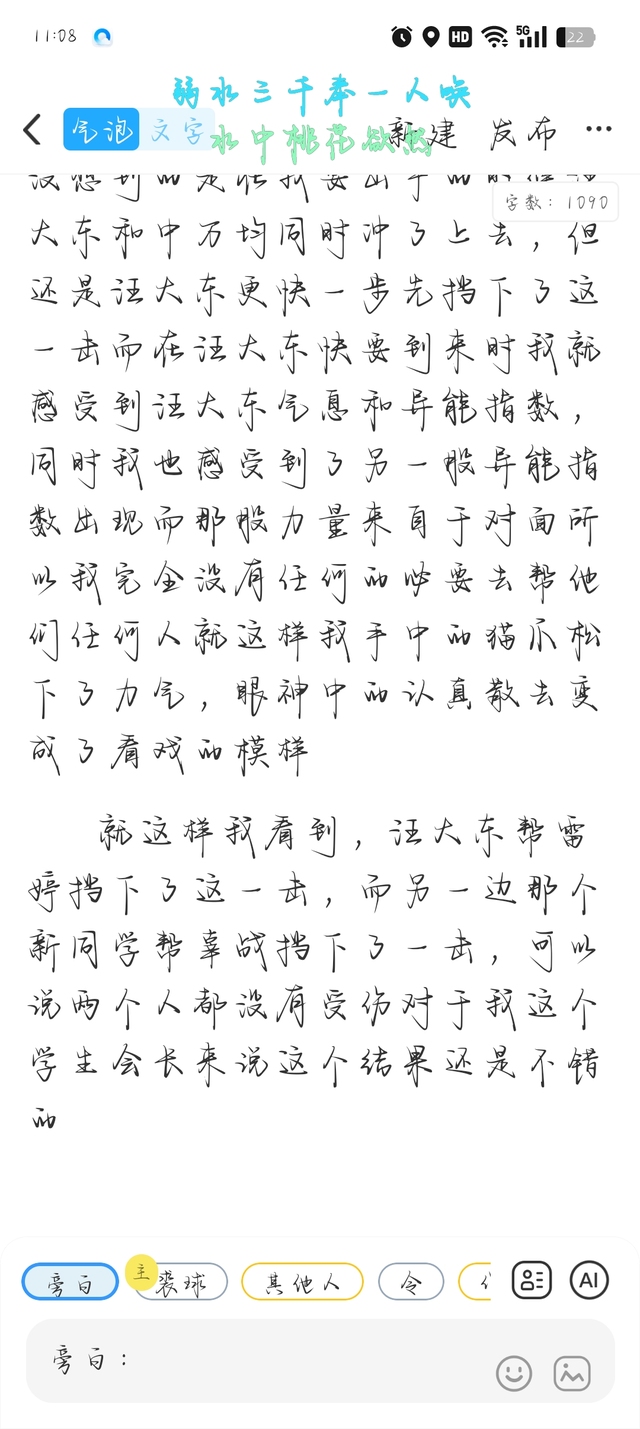 11:08
HD
5G
22
弱水三千奉一人唤
水中桃花
气泡
文字
新建
发布
字数：1090
没想到的是在我要出手的时候
大东和中万均同时冲了上去，但
还是汪大东更快一步先挡下了这
一击而在汪大东快要到来时我就
感受到汪大东气息和异能指数，
同时我也感受到了另一般异能指
数出现而那股力量来自于对面所
以我完全没有任何的必要去帮他
们任何人就这样我手中的猫爪松
下了力气，眼神中的认真散去变
成了看戏的模样
就这样我看到，汪大东帮雷
婷挡下了这一击，而另一边那个
新同学帮辜战挡下了一击，可以
说两个人都没有受伤对于我这个
学生会长来说这个结果还是不错
的
旁白
主
裘球
其他人
令
AI
旁白：